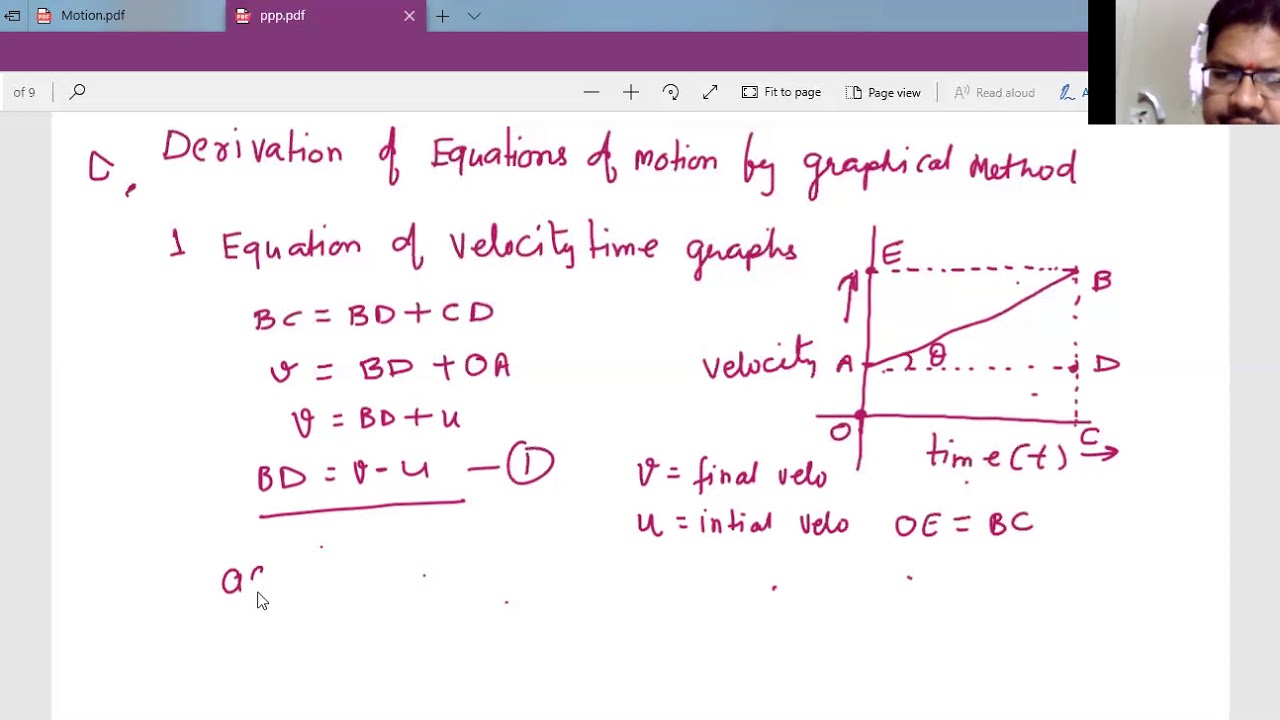 Motion.pdf
ppp.pdf
of 9
Fit to page
Page view
Read aloud
Derivation of Equations of motion by graphical Method
1 Equation of velocity time graphs
BC = BD + CD
v = BD + OA
v = BD + u
BD = v - u — ①
E
B
velocity A θ D
O C
time (t)
v = final velo
u = intial velo OE = BC